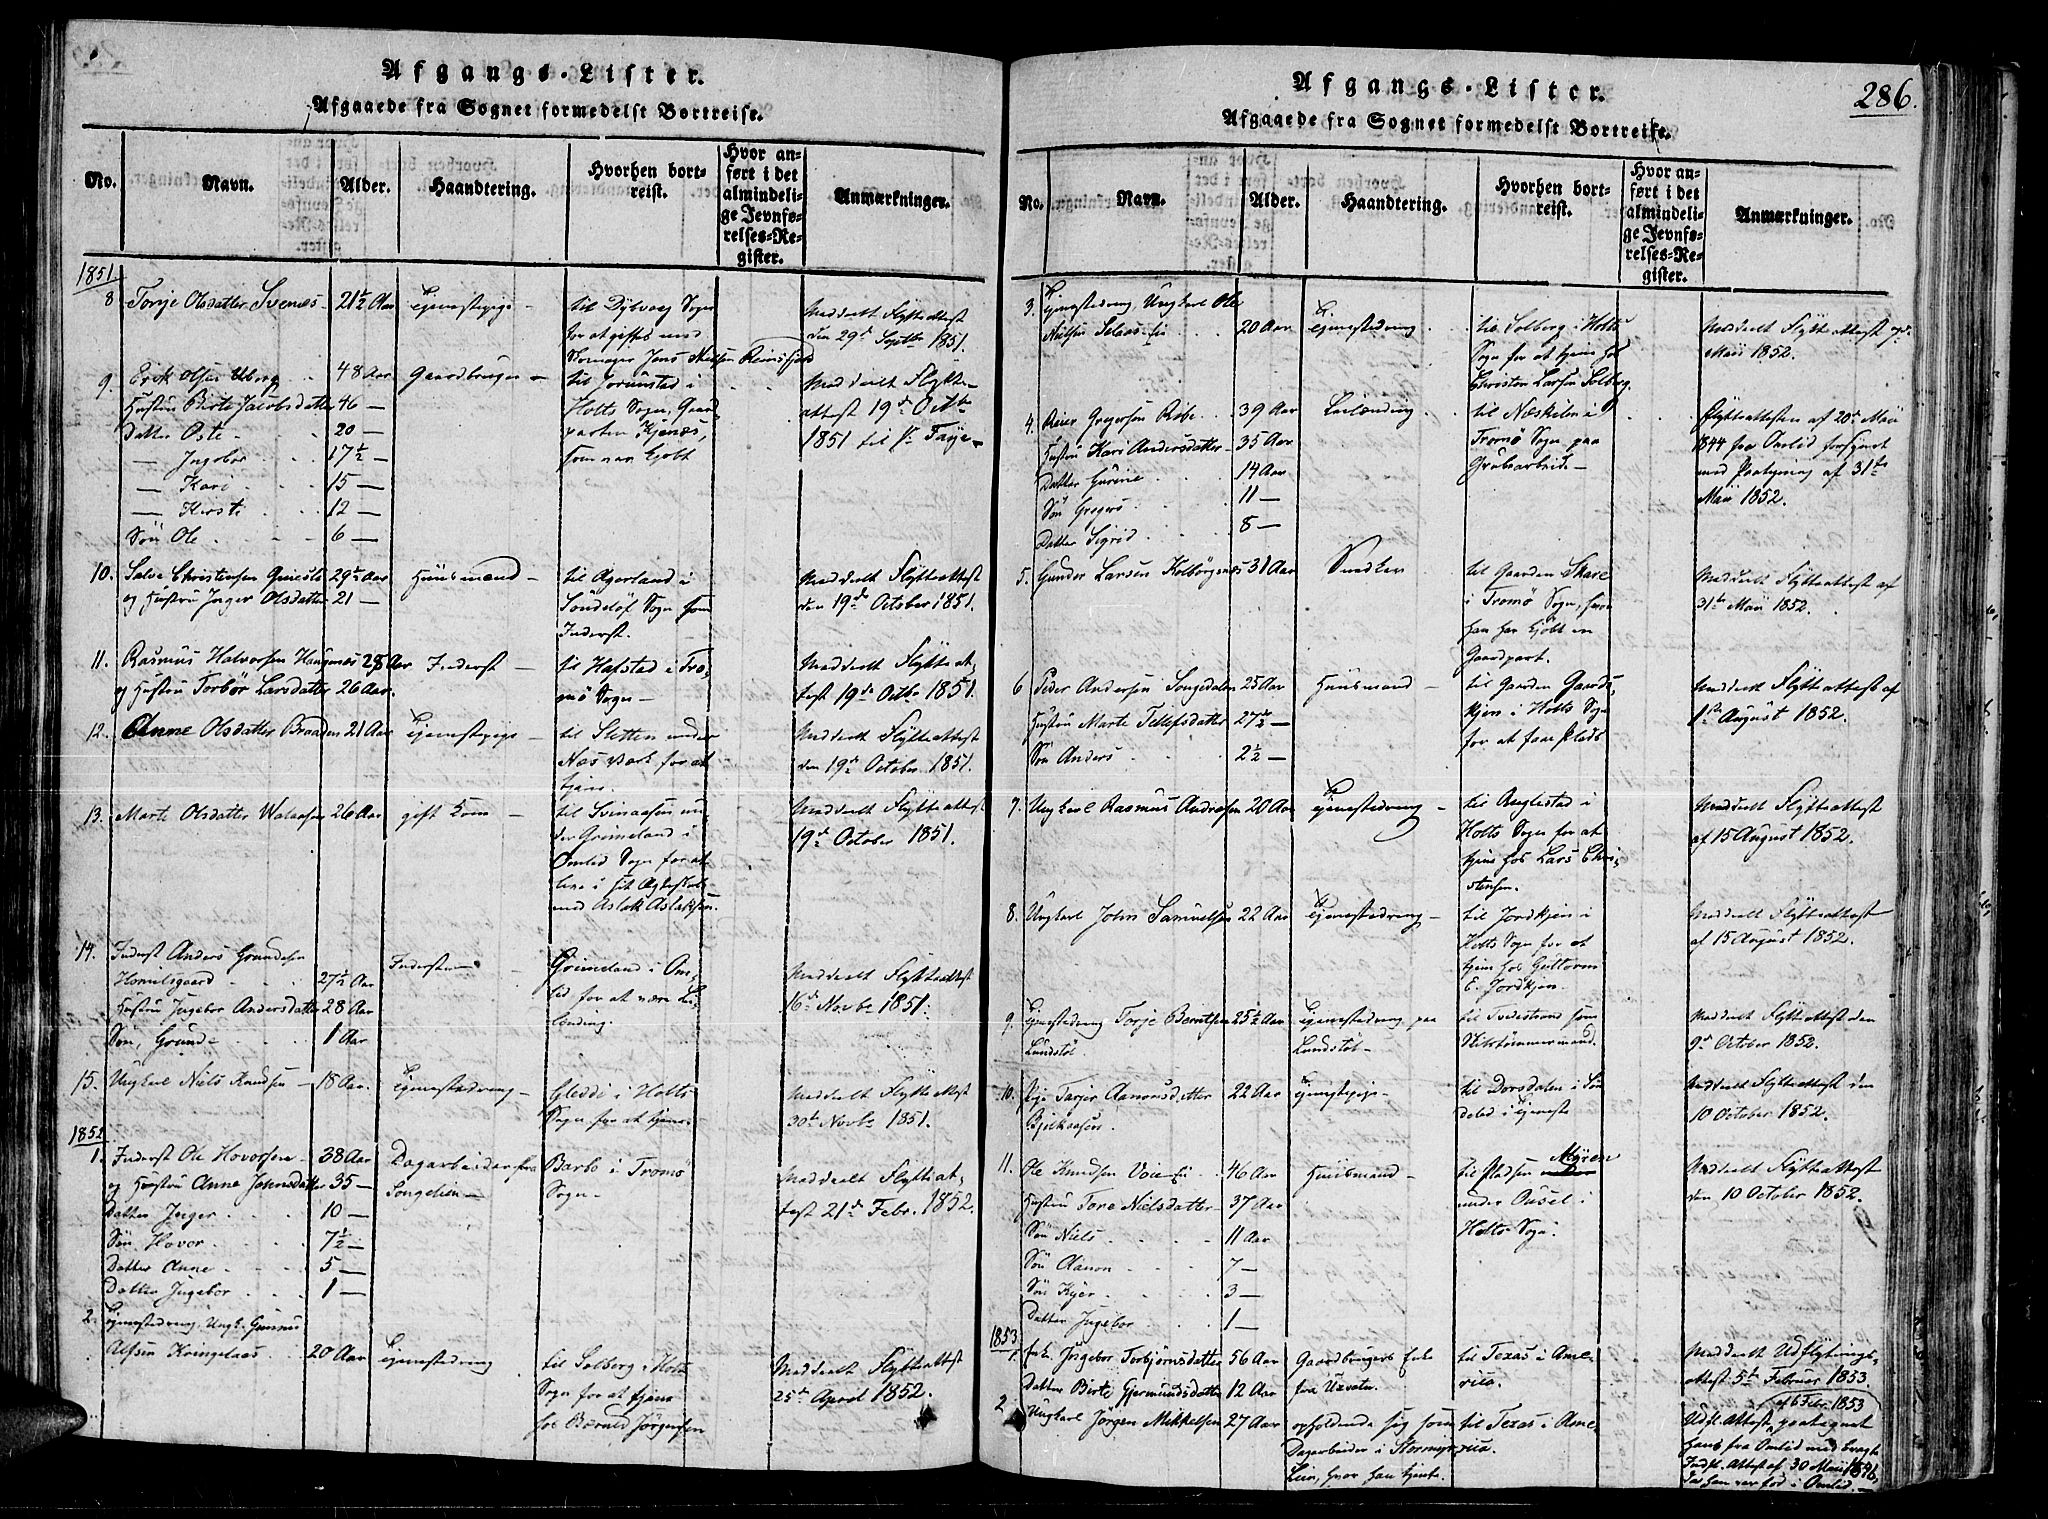 Afgangs-Lister.
Afgaaede fra Sognet formedelst Bortreise.
No. Navn. Alder. Haandtering. Hvorhen bortreist. Hvor anført i det almindelige Jevnførelses-Register. Anmærkninger.
1851
8 Torje Olsdatter Svenes 21½ Aar Tjenestepige til Dybvaag Sogn for at giftes med Skomager Jens Nielsen Meddeelt Flytteattest den 29de Septbr 1851.
9. Erik Olsen Uberg 48 Aar Gaardbruger til i Holts Sogn, Gaardparten som var kjøbt Meddeelt Flytteattest 19de Octbr 1851 til
Hustru Birte Jacobsdatter 46 —
Datter Oste 20 —
— Ingebor 17½ —
— Kari 15 —
— Kirsti 12 —
Søn Ole 6 —
10. Salve Christensen 29½ Aar Huusmand til Agerland i Søndeløf Sogn som Inderst. Meddeelt Flytteattest den 19de October 1851.
og Hustru Inger Olsdatter 21 —
11. Rasmus Halvorsen Haugenes 28 Aar Inderst til Hafstad i Tromø Sogn Meddeelt Flytteattest 19de Octbr 1851.
og Hustru Torbør Larsdatter 26 Aar.
12. Anne Olsdatter Braaden 21 Aar Tjenestepige til Sletten under Næs Værk for at tjene Meddeelt Flytteattest den 19de October 1851.
13. Marte Olsdatter 26 Aar gift Kone til Svinaasen under Grimeland i Omlid Sogn for at leve i sit Ægteskab med Aslak Aslaksen. Meddeelt Flytteattest 19de October 1851.
14. Inderst Anders Grundesen
Homelsgaard 27½ Aar Inderst Grimeland i Omlid for at være Leilending. Meddeelt Flytteattest 16de Novbr 1851.
Hustru Ingebor Andersdatter 28 Aar
Søn, Grunde 1 Aar
15. Ungkarl Niels Knudsen 18 Aar. Tjenestedreng Gleddi i Holts Sogn for at tjene Meddeelt Flytteattest 30te Novbr 1851.
1852
1. Inderst Ole Hovorsen 38 Aar Dagarbeider fra Songelien Barbo i Tromø Sogn Meddeelt Flytteattest 21de Febr. 1852.
og Hustru Anne Johnsdatter 35 —
Datter Inger 10 —
Søn Hovor 7½ —
Datter Anne 5 —
Datter Ingebor 1 —
2. Tjenestedreng, Ungk. Gunnus
Alfsen Kringelaas 20 Aar Tjenestedreng til Solberg i Holts Sogn for at tjene hos Bærnld Jørgensen Meddeelt Flytteattest 25de April 1852.
286.
Afgangs-Lister.
Afgaaede fra Sognet formedelst Bortreise.
No. Navn. Alder. Haandtering. Hvorhen bortreist. Hvor anført i det almindelige Jevnførelses-Register. Anmærkninger.
3. Tjenestedreng, Ungkarl Ole
Nielsen Selaas Ei 20 Aar Tjenestedreng til Solberg i Holts Sogn for at tjene hos Christen Larsen Solberg. Meddeelt Flytteattest 7de Mai 1852.
4. Reier Gregersen Röbe 39 Aar Leilænding til Næskilen i Tromø Sogn paa Grubearbeide Flytteattesten af 20de Mai 1844 fra Omlid forsynet med Paategning af 31te Mai 1852.
Hustru Kari Andersdatter 35 Aar
Datter Gurine 14 Aar
Søn Gregers 11 —
Datter Sigrid 8 —
5. Gunder Larsen Kolbörgnæs 31 Aar Snedker til Gaarden Skare i Tromø Sogn, hvor han har kjøbt en Gaardpart. Meddeelt Flytteattest af 31te Mai 1852.
6 Peder Andersen Songedalen 25 Aar Huusmand til Gaarden Gaardskjen i Holts Sogn for at faae Plads Meddeelt Flytteattest af 1ste August 1852.
Hustru Marte Tellefsdatter 27½ —
Søn Anders 2½ —
7. Ungkarl Rasmus Andræsen 20 Aar Tjenestedreng til Anglestad i Holts Sogn for at tjene hos Lars Christensen. Meddeelt Flytteattest af 15 August 1852.
8. Ungkarl John Samuelsen 22 Aar Tjenestedreng til Jordkjen i Holts Sogn for at tjene hos Guttorm E. Jordkjen Meddeelt Flytteattest af 15 August 1852.
9. Tjenestedreng Torje Berntsen 25½ Aar Tjenestedreng paa Lundstøl til Tvedestrand som Skibstømmermand. Meddeelt Flytteattest den 9de October 1852.
Lundstøl
10. Pige Tarjer Aanonsdatter 22 Aar Tjenestepige til Dorsdalen i Søndeled i Tjeneste Meddeelt Flytteattest den 10 October 1852.
Bjelkaasen.
11. Ole Knudsen Voie Ei 46 Aar Huusmand til Pladsen Myren under Ousel i Holts Sogn Meddeelt Flytteattest den 10 October 1852.
Hustru Tone Nielsdatter 37 Aar
Søn Niels 11 Aar
Søn Aanon 7 —
Søn Kjer 3 —
Datter Ingebor 1 —
1853
1. Enke Ingebor Torbjørnsdatter 56 Aar Gaardbrugers Enke fra Uxvatn. til Texas i America Meddeelt Udflytningsattest 5te Februar 1853
Datter Birte Gjermundsdatter 12 Aar
2 Ungkarl Jörgen Mikkelsen 27 Aar opholdende sig som Dagarbeider i Stormyr Lien, hvor han tjente. til Texas i America. Udfl. Attest af 6 Febr. 1853 paategnet hans fra Omlid medbragte Indfl. Attest af 30 Mai 1846, da han var fød i Omlid.